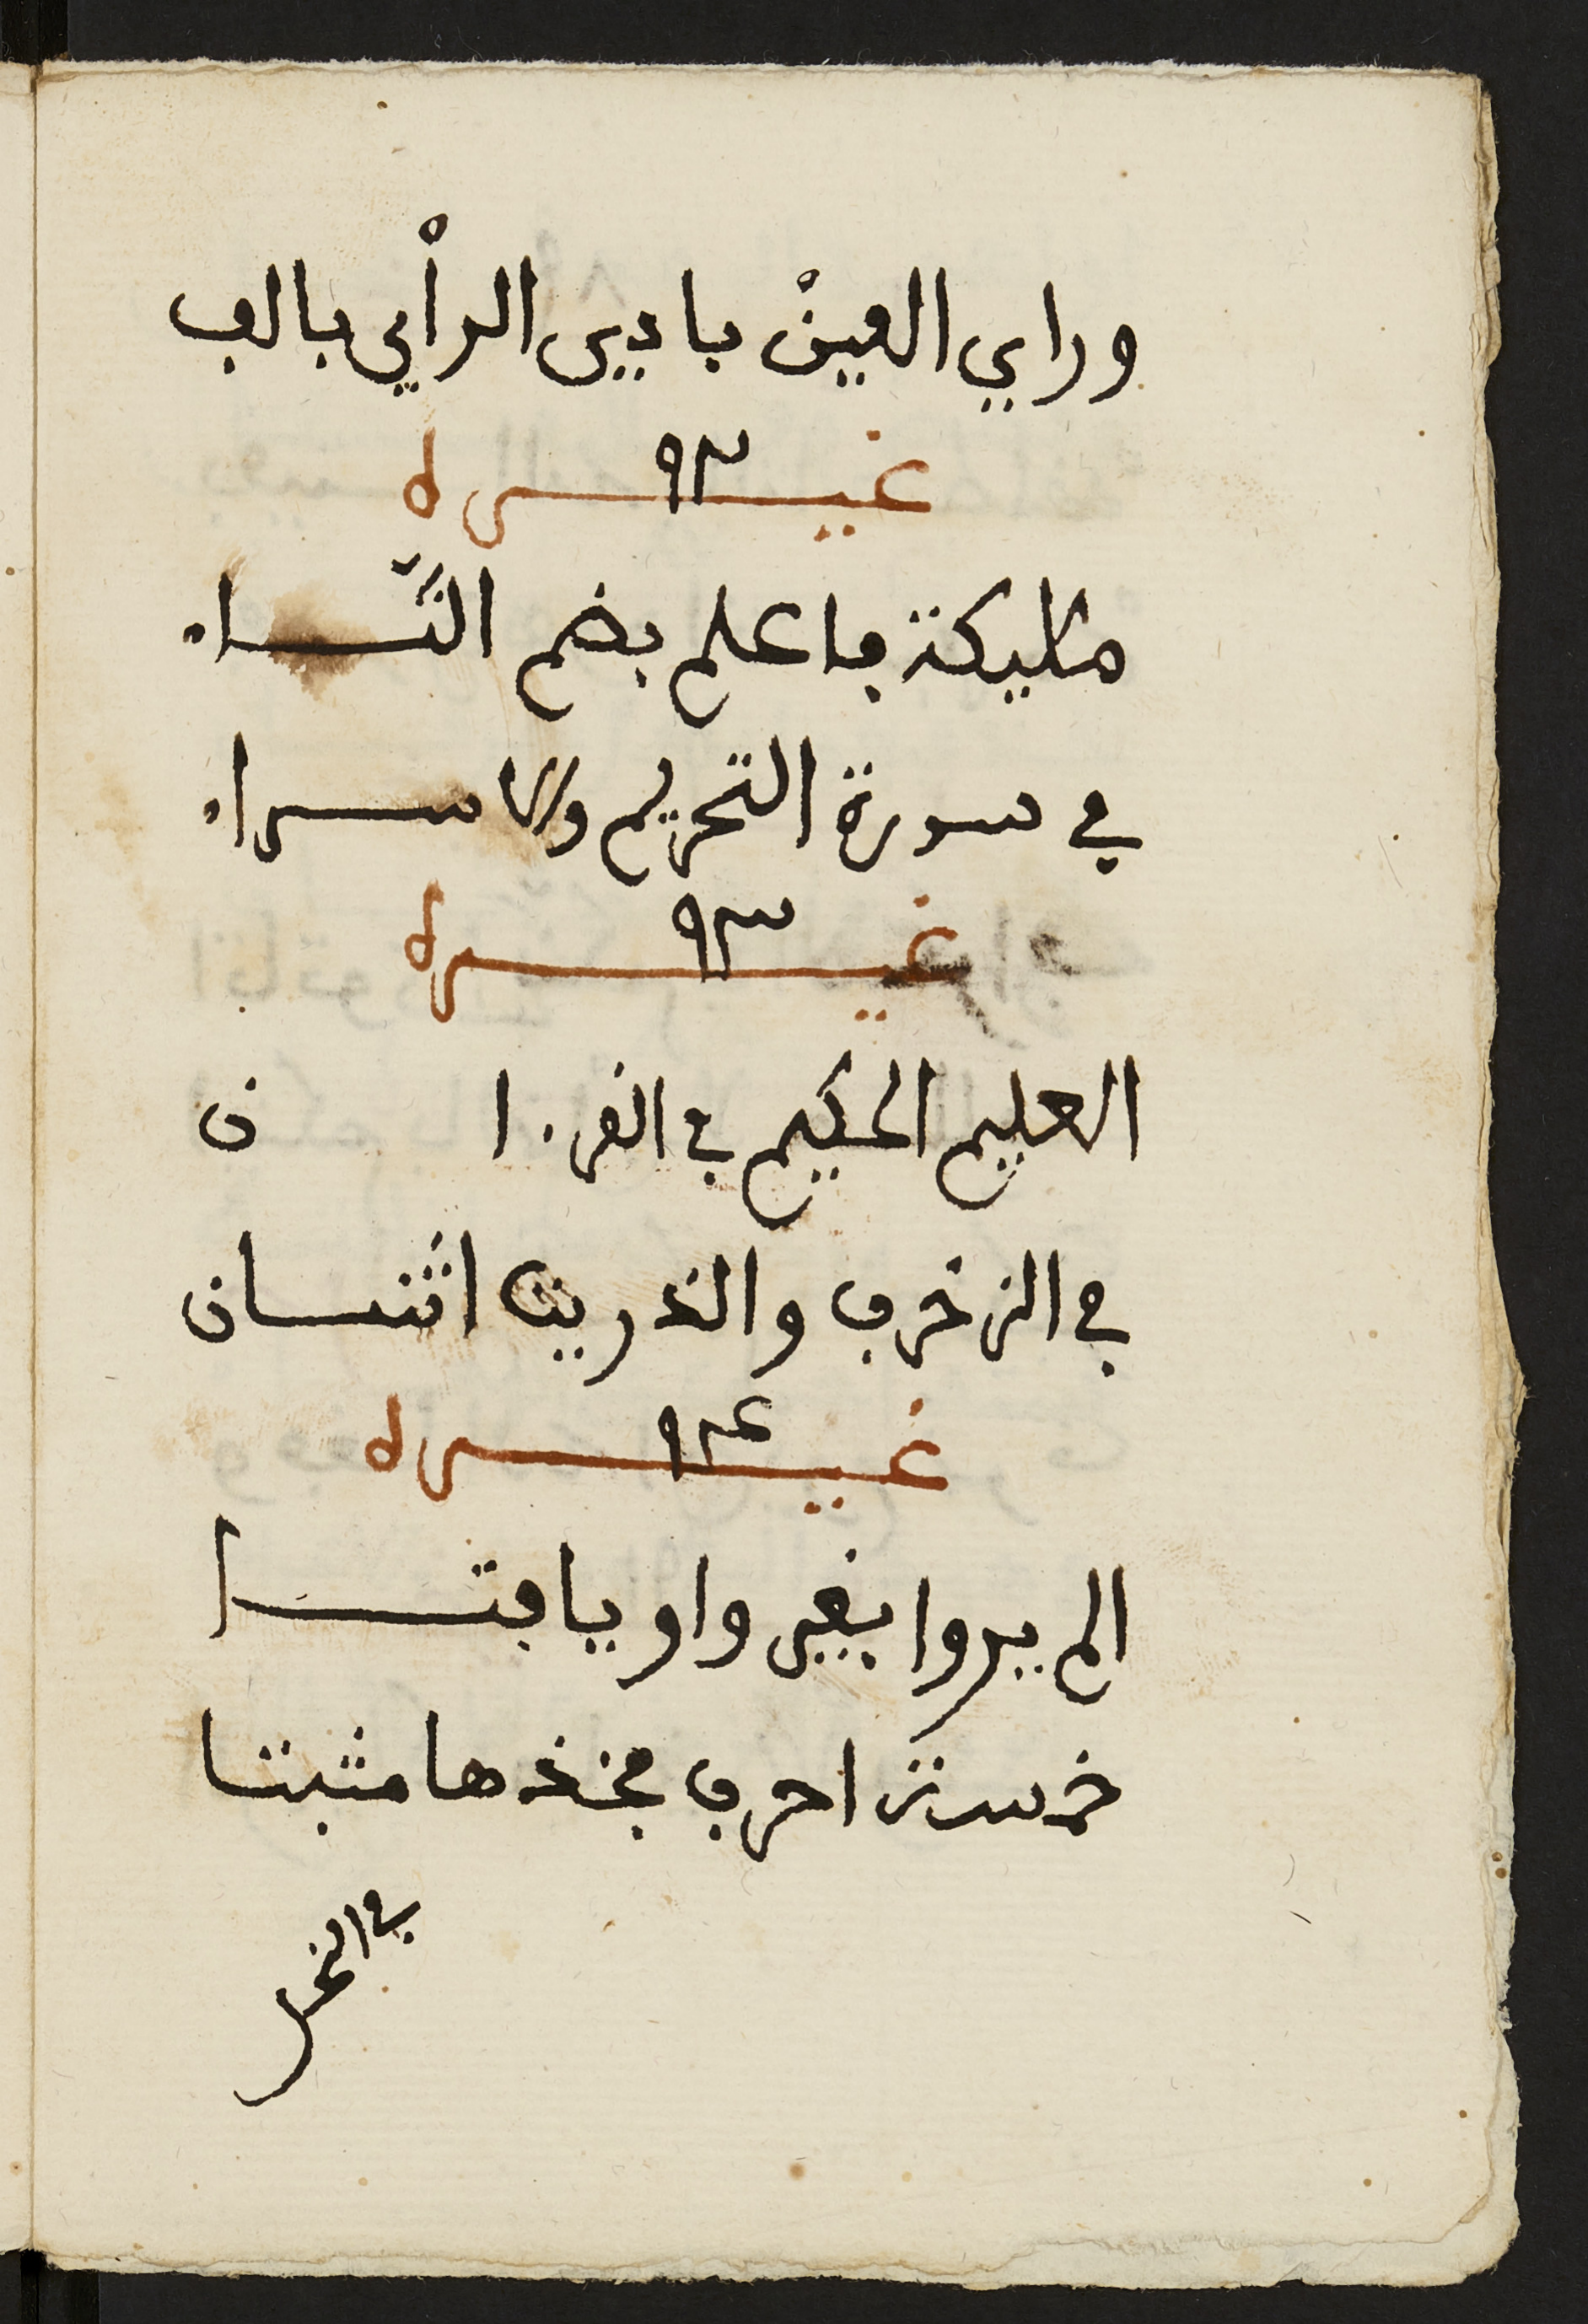 وراي العين بادي الرأي بالف
غيره ٩٢
مليكة ما علم بضم التاء
في سورة التحريم والاسراء
غيره ٩٣
العليم الحكيم في القرءان
في الزخرف والذريت اثنان
غيره ٩٤
الم يروا بغير واو يا فتا
خمسة احرف فخذها مثبتا
في النحل